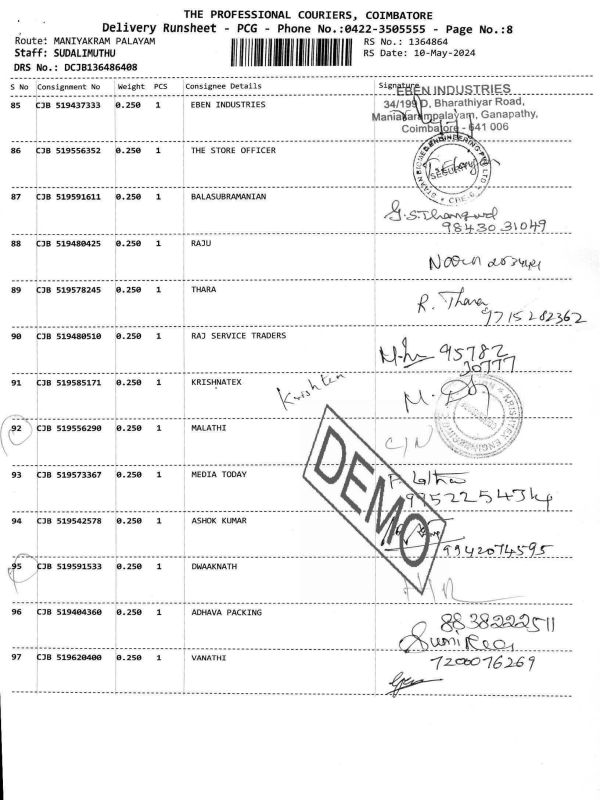 THE PROFESSIONAL COURIERS, COIMBATORE
Delivery Runsheet - PCG - Phone No.:0422-3505555 - Page No.:8
Route: MANIYAKRAM PALAYAM RS No.: 1364864
Staff: SUDALIMUTHU RS Date: 10-May-2024
DRS No.: DCJB136486408
S No Consignment No Weight PCS Consignee Details Signature
EBEN INDUSTRIES
85 CJB 519437333 0.250 1 EBEN INDUSTRIES 34/199 D, Bharathiyar Road,
Maniakarampalayam, Ganapathy,
Coimbatore - 641 006
86 CJB 519556352 0.250 1 THE STORE OFFICER
SECURITY
87 CJB 519591611 0.250 1 BALASUBRAMANIAN
98430 31049
88 CJB 519480425 0.250 1 RAJU
89 CJB 519578245 0.250 1 THARA
R. Thara
9715282362
90 CJB 519480510 0.250 1 RAJ SERVICE TRADERS
95782
30777
91 CJB 519585171 0.250 1 KRISHNATEX
Krishtex
92 CJB 519556290 0.250 1 MALATHI
C/N
93 CJB 519573367 0.250 1 MEDIA TODAY
94 CJB 519542578 0.250 1 ASHOK KUMAR
9942074595
95 CJB 519591533 0.250 1 DWAAKNATH
96 CJB 519404360 0.250 1 ADHAVA PACKING
8838222511
97 CJB 519620400 0.250 1 VANATHI 7200076269
DEMO